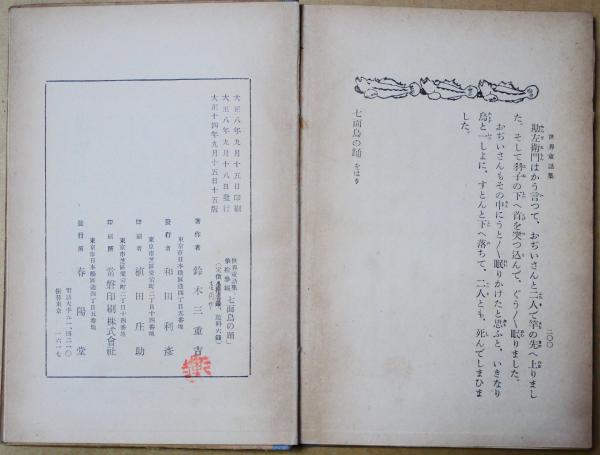 世界童話集
二〇〇
勘左衛門はかう言つて、おぢいさんと二人で竿の先へ上りまし
た。そして羽子の下へ首を突つ込んで、ぐう〳〵眠りました。
おぢいさんもその中にうと〳〵眠りかけたと思ふと、いきなり
鳥と一しよに、すとんと下へ落ちて、二人とも、死んでしまひま
した。
七面鳥の踊 をはり
世界童話集
第拾參編
「七面鳥の踊」
著作者 鈴木三重吉
東京市日本橋區通四丁目五番地
發行者 和田利彥
東京市芝區愛宕町二丁目十四番地
印刷者 植田庄助
東京市芝區愛宕町二丁目十四番地
印刷所 常磐印刷株式會社
東京市日本橋區通四丁目五番地
發行所 春陽堂
大正八年九月十五日印刷
大正八年九月十八日發行
大正十四年九月十五日十五版